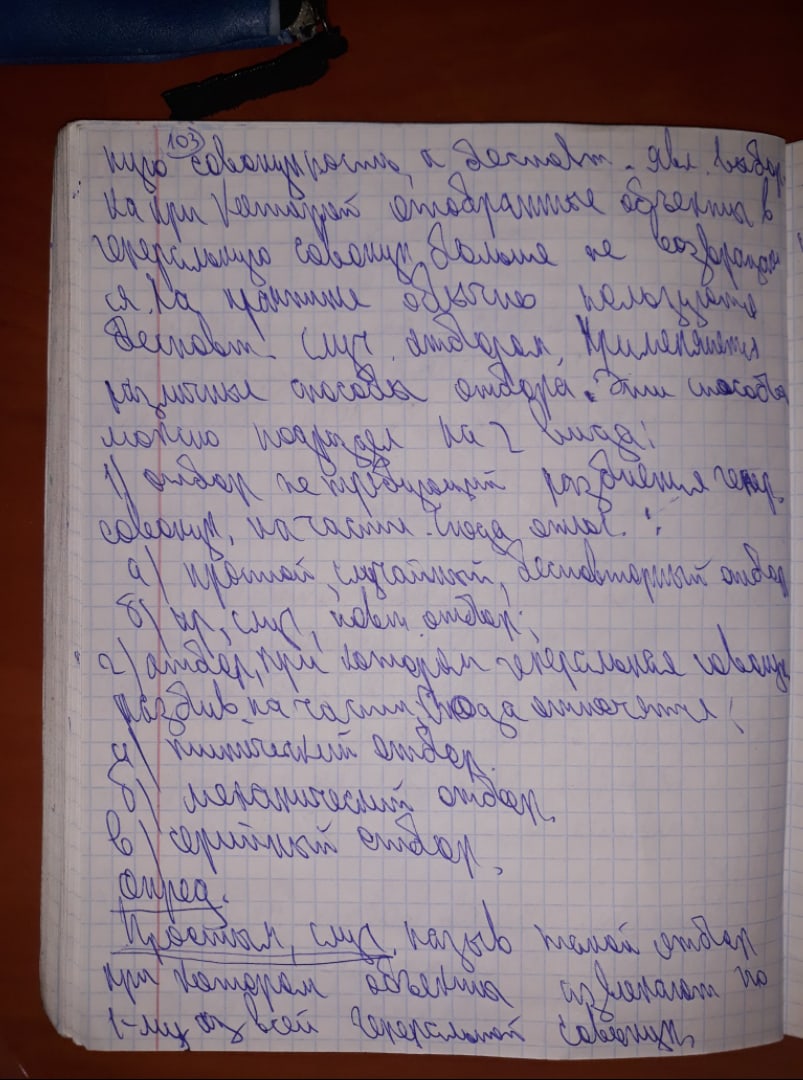 103
ную совокупность, а бесповт. явл. выбор-
ка при которой отобранные объекты в
генеральную совокуп. больше не возвращаю
ся. На практике обычно пользуются
бесповт. случ. отбором. Применяются
различные способы отбора. Эти способы
можно подраздел на 2 вида:
1) отбор не требующий разбиения генер.
совокуп. на части. Сюда относ.:
а) простой, случайный, бесповторный отбор
б) пр, случ, повт. отбор;
2) отбор, при котором генеральная совокуп
разбив. на части. Сюда относятся:
а) типический отбор.
б) механический отбор.
в) серийный отбор.
Опред.
Простым, случ. назыв такой отбор
при котором объекты извлекают по
1-му из всей генеральной совокуп.